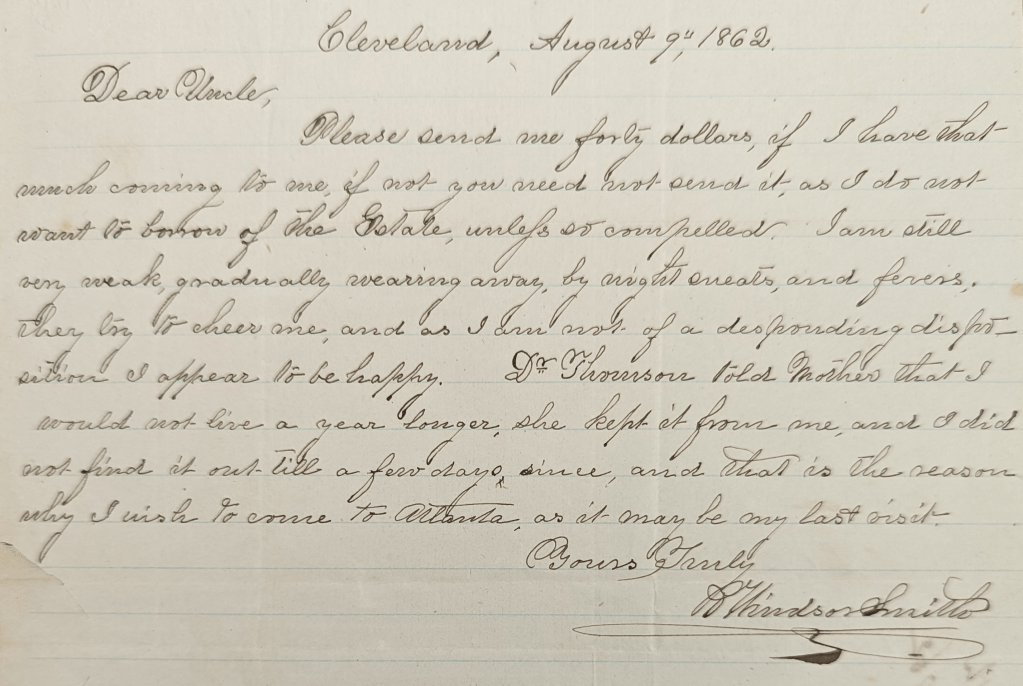 Cleveland, August 9", 1862.
Dear Uncle,
Please send me forty dollars, if I have that
much coming to me, if not you need not send it, as I do not
want to borrow of the Estate, unless so compelled. I am still
very weak, gradually wearing away, by night sweats, and fevers.
they try to cheer me, and as I am not of a desponding dispo-
sition I appear to be happy. Dr. Thomson told Mother that I
would not live a year longer, she kept it from me, and I did
not find it out till a few days, since, and that is the reason
why I wish to come to Atlanta, as it may be my last visit.
Yours Truly
Windsor Smith